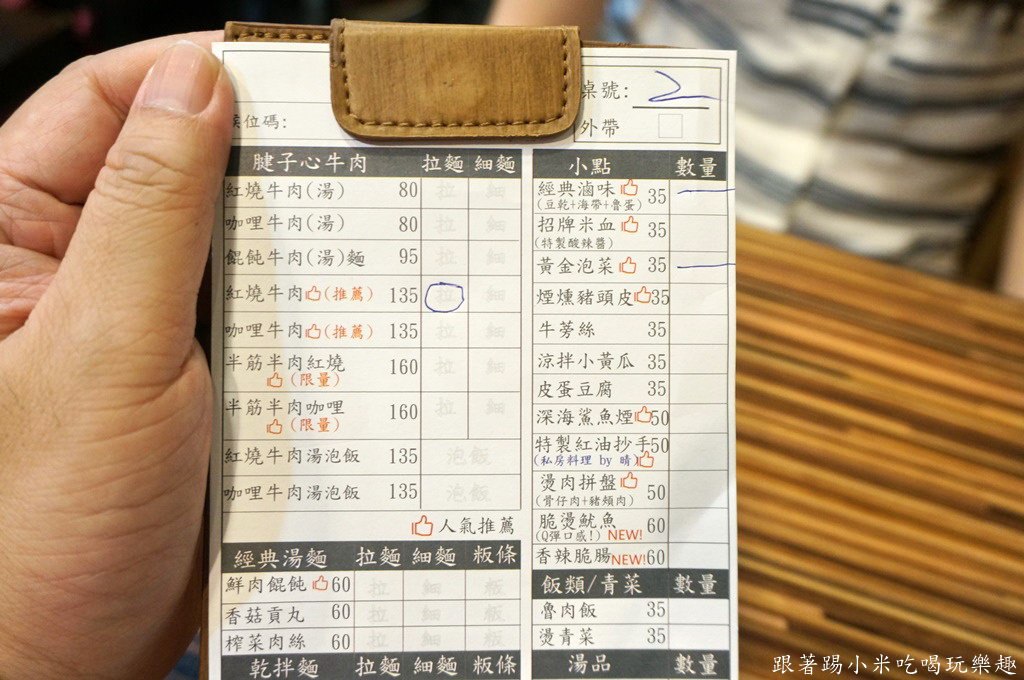 桌號: 2
候位碼:
外帶
腱子心牛肉 拉麵 細麵
紅燒牛肉(湯) 80 拉 細
咖哩牛肉(湯) 80 拉 細
餛飩牛肉(湯)麵 95 拉 細
紅燒牛肉(推薦) 135 拉 細
咖哩牛肉(推薦) 135 拉 細
半筋半肉紅燒 160 拉 細
(限量)
半筋半肉咖哩 160 拉 細
(限量)
紅燒牛肉湯泡飯 135 泡飯
咖哩牛肉湯泡飯 135 泡飯
人氣推薦
經典湯麵 拉麵 細麵 粄條
鮮肉餛飩 60 拉 細 粄
香菇貢丸 60 拉 細 粄
榨菜肉絲 60 拉 細 粄
乾拌麵 拉麵 細麵 粄條
小點 數量
經典滷味 35
(豆乾+海帶+魯蛋)
招牌米血 35
(特製酸辣醬)
黃金泡菜 35
煙燻豬頭皮 35
牛蒡絲 35
涼拌小黃瓜 35
皮蛋豆腐 35
深海鯊魚煙 50
特製紅油抄手 50
(私房料理 by 晴)
燙肉拼盤 50
(骨仔肉+豬頰肉)
脆燙魷魚 60
(Q彈口感!) NEW!
香辣脆腸 NEW! 60
飯類/青菜 數量
魯肉飯 35
燙青菜 35
湯品 數量
跟著踢小米吃喝玩樂趣